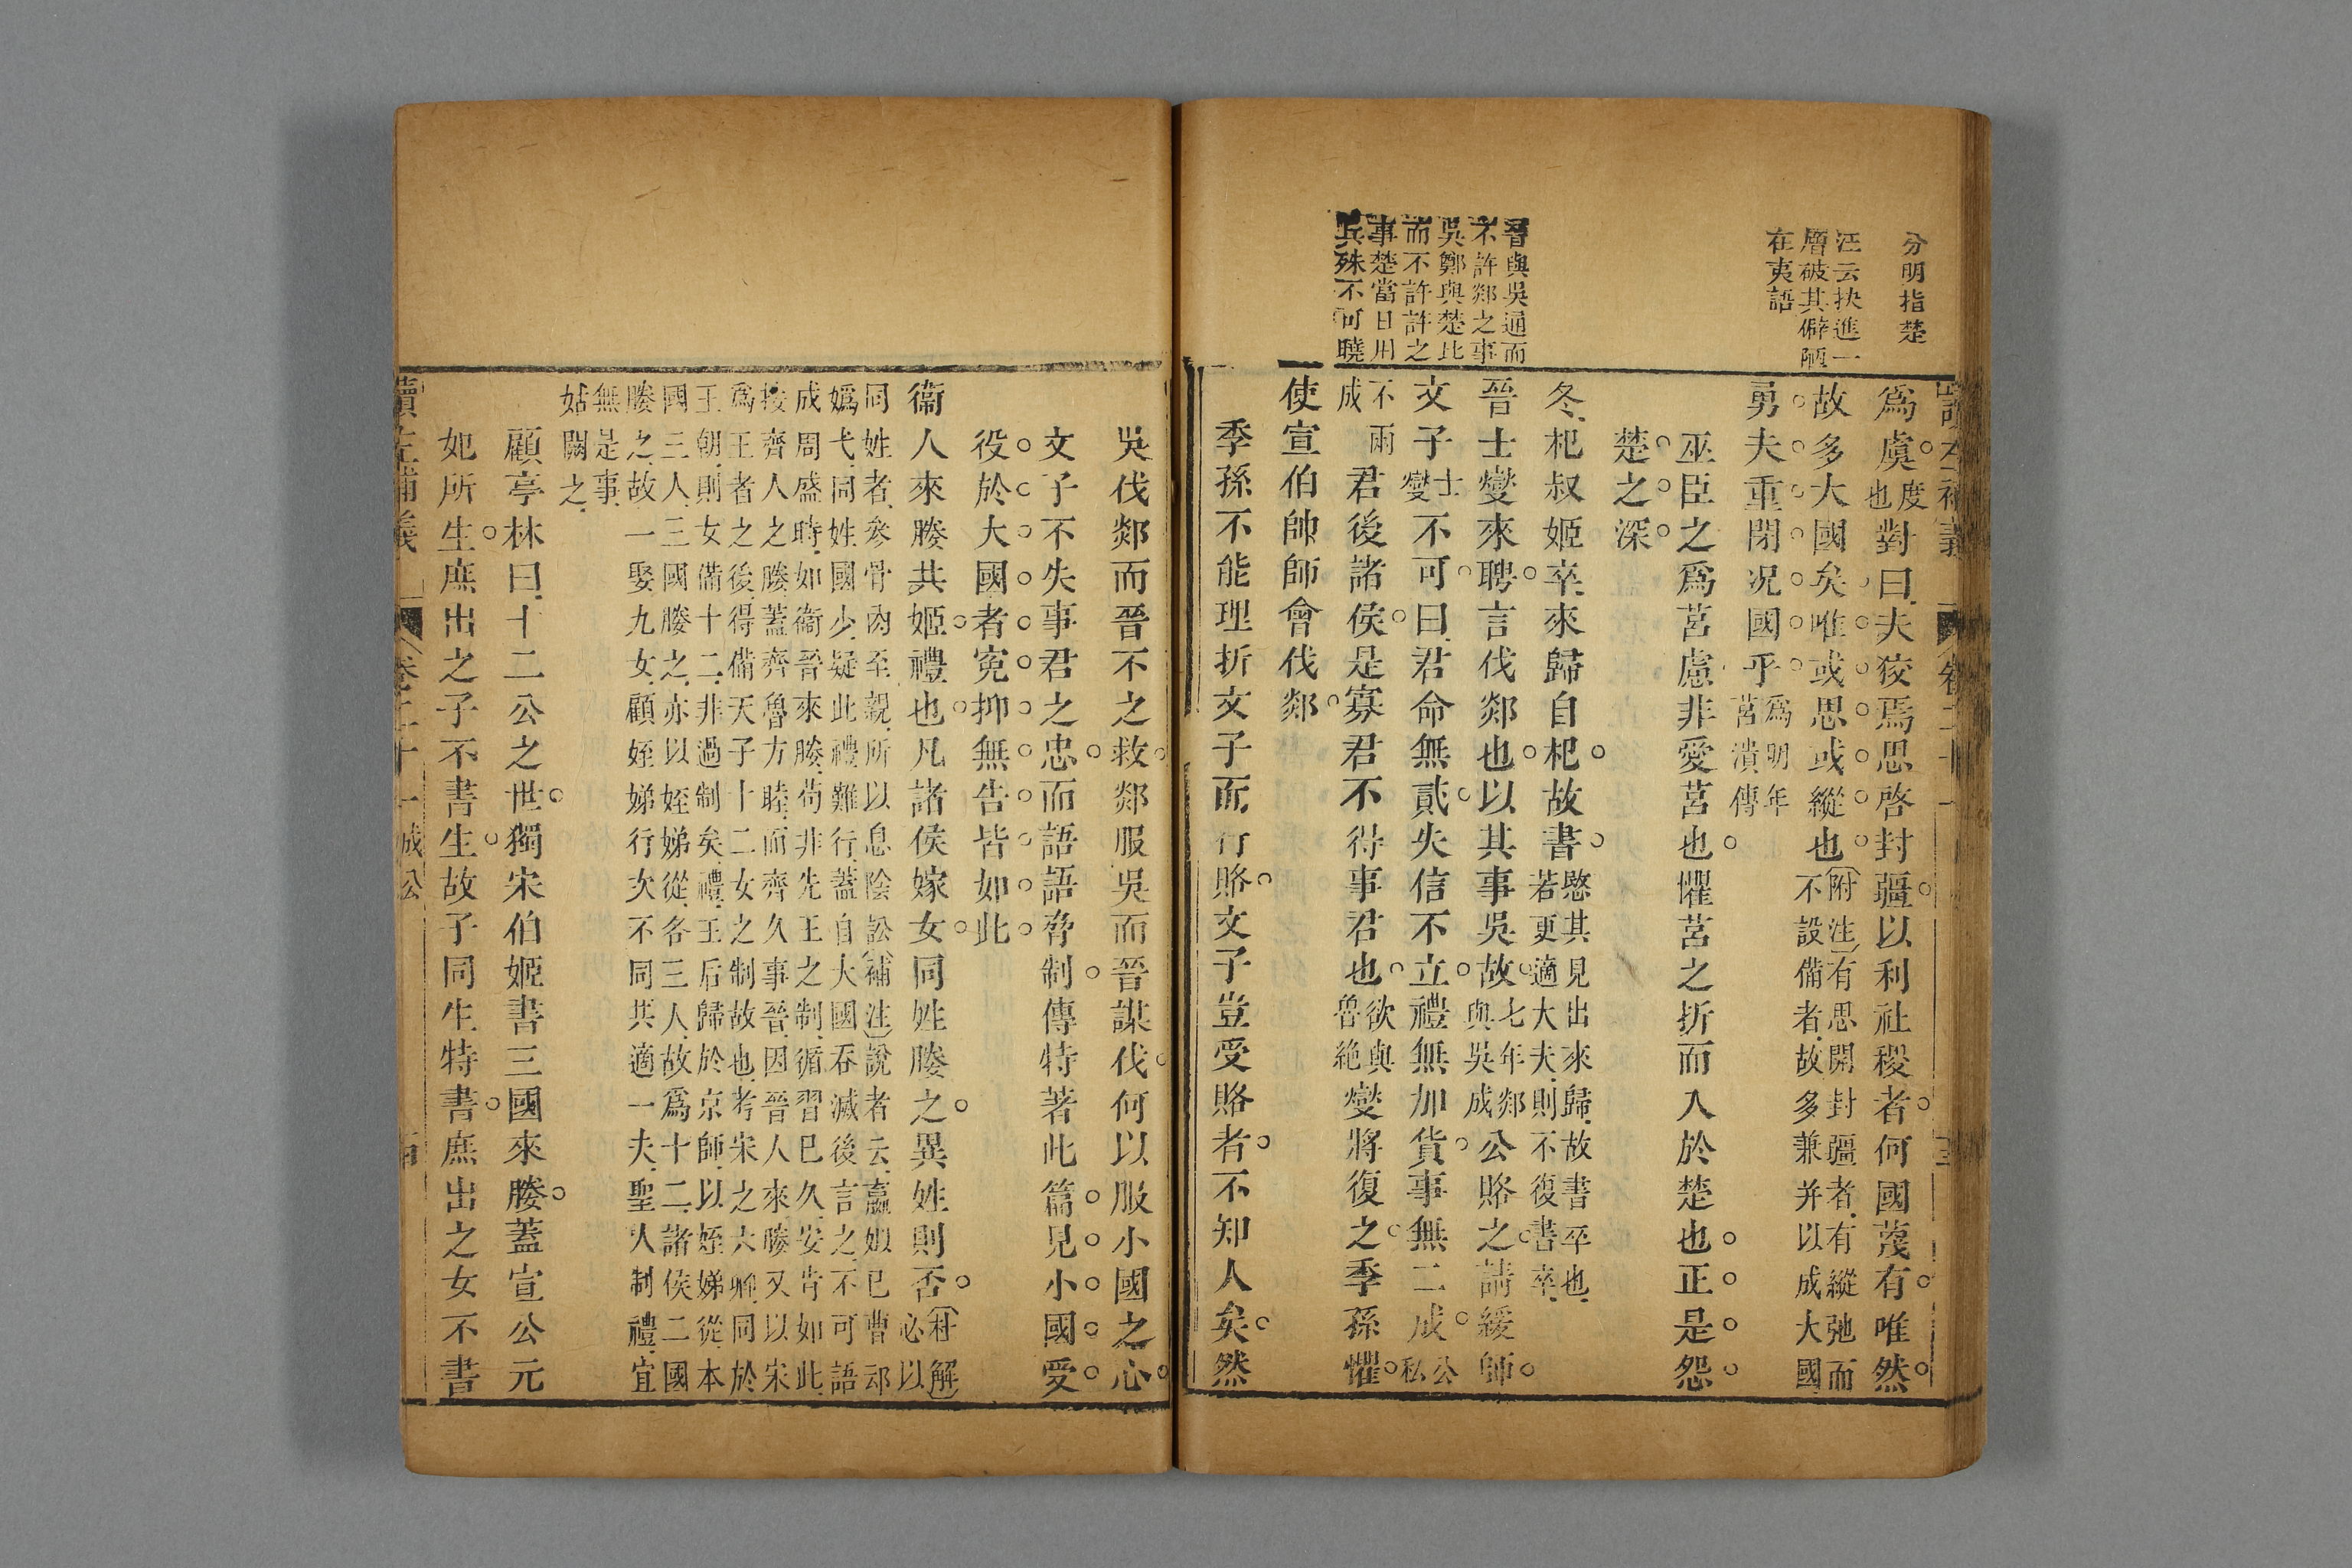 分明指楚
汪云抉進一
層破其僻陋
在夷語
晉與吳通而
不許郯之事
吳鄭與楚比
而不許許之
事楚當日用
兵殊不可曉
爲虞度也對曰夫狡焉思啓封疆以利社稷者何國蔑有唯然
故多大國矣唯或思或縱也附注有思開封疆者有縱弛而不設備者故多兼并以成大國
勇夫重閉况國乎爲明年莒潰傳
巫臣之爲莒慮非愛莒也懼莒之折而入於楚也正是怨
楚之深
冬杞叔姬卒來歸自杞故書愍其見出來歸故書卒也若更適大夫則不復書卒
晉士燮來聘言伐郯也以其事吳故七年郯與吳成公賂之請緩師
文子士燮不可曰君命無貳失信不立禮無加貨事無二成公私
不兩成君後諸侯是寡君不得事君也欲與魯絶燮將復之季孫懼
使宣伯帥師會伐郯
季孫不能理折文子而行賂文子豈受賂者不知人矣然
吳伐郯而晉不之救郯服吳而晉謀伐何以服小國之心
文子不失事君之忠而語語脅制傳特著此篇見小國受
役於大國者寃抑無告皆如此
衞人來媵共姬禮也凡諸侯嫁女同姓媵之異姓則否杜解必以
同姓者參骨肉至親所以息陰訟補注說者云嬴姒已曹邧
嬀弋同姓國少疑此禮難行蓋自大國吞滅後言之不可語
成周盛時如衞晉來媵苟非先王之制循習已久安肯如此
接齊人之媵蓋齊魯方睦而齊久事晉因晉人來媵又以宋
爲王者之後得備天子十二女之制故也考宋之六卿同於
王朝則女備十二非過制矣禮王后歸於京師以姪娣從本
國三人三國媵之亦以姪娣從各三人故爲十二諸侯二國
媵之故一娶九女顧姪娣行次不同共適一夫聖人制禮宜
無是事
姑闕之
顧亭林曰十二公之世獨宋伯姬書三國來媵蓋宣公元
妃所生庶出之子不書生故子同生特書庶出之女不書
讀左補義
卷二十一成公